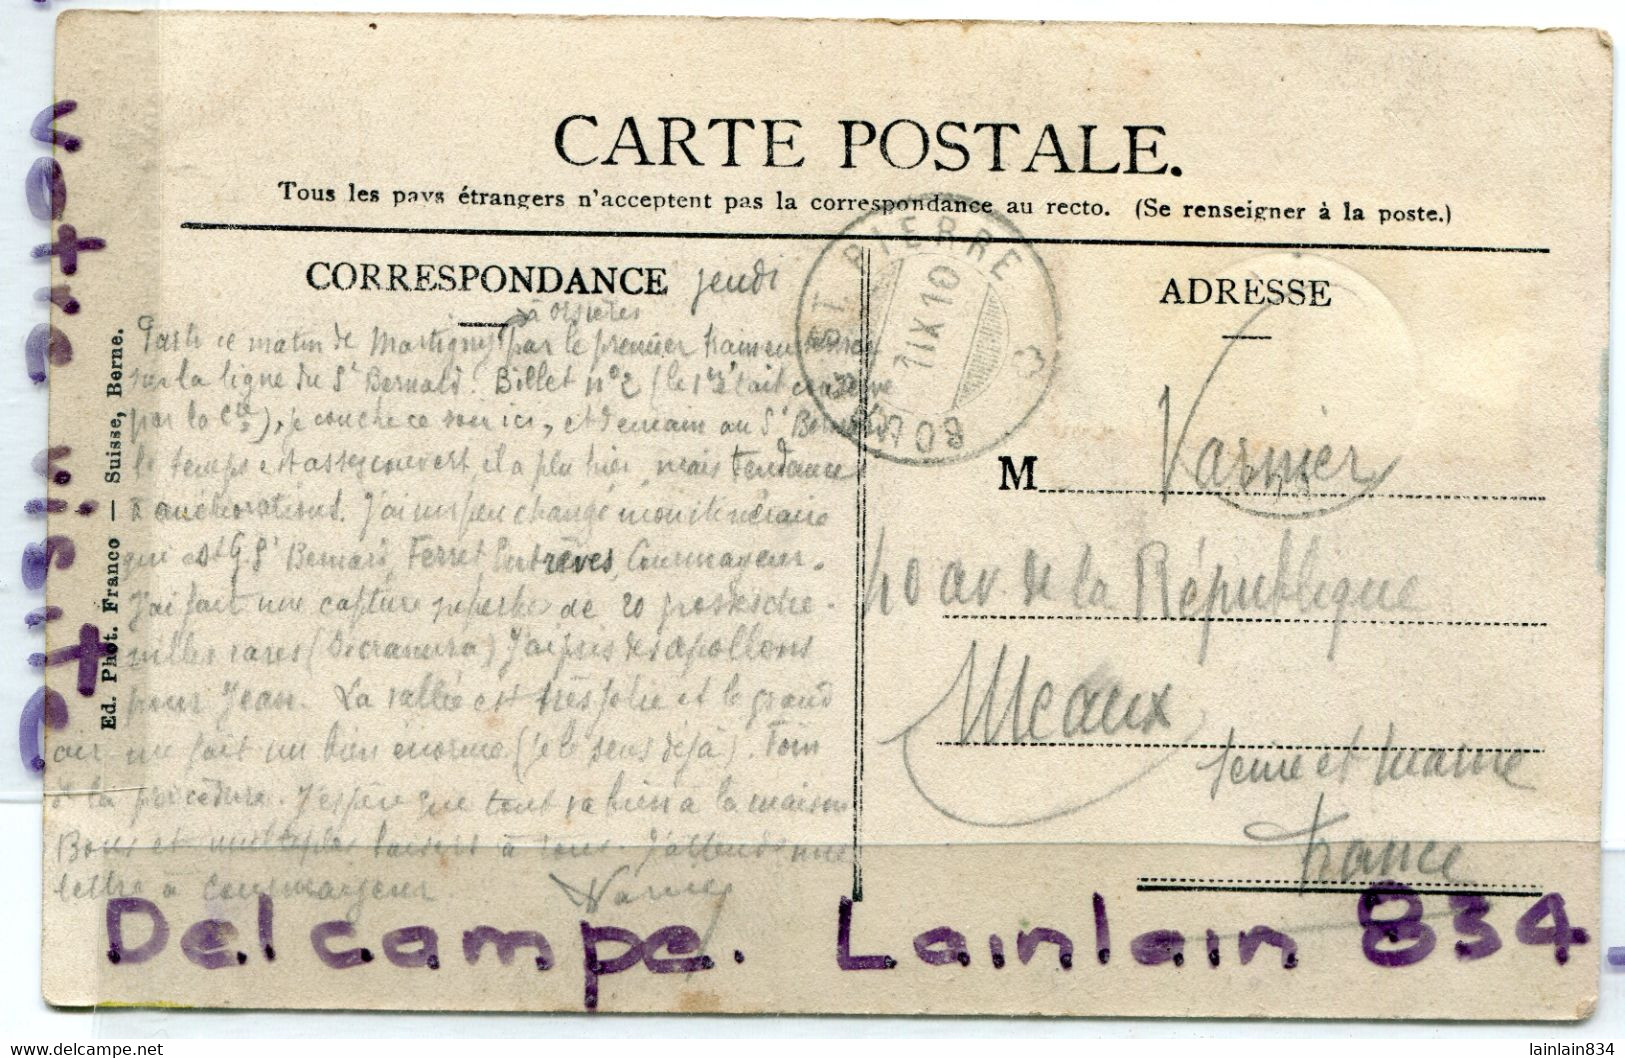 CARTE POSTALE.
Tous les pays étrangers n'acceptent pas la correspondance au recto. (Se renseigner à la poste.)
CORRESPONDANCE jeudi
à Orsières
Parti ce matin de Martigny par le premier train en
sur la ligne du St Bernard. Billet n° 2 (le 1er était
par la Cie), je couche ce soir ici, et demain au St Bernard
le temps est assez couvert, il a plu hier, mais tendance
à améliorations. J'ai un peu changé mon itinéraire
qui est G. St Bernard, Ferret Entrèves, Courmayeur.
J'ai fait une capture de 20 grosses che-
nilles rares ( ) J'ai pris des apollons
pour Jean. La vallée est très jolie et le grand
air me fait un bien énorme (je le sens déjà). Foin
de la procédure. J'espère que tout va bien à la maison
Bons et multiples baisers à tous. J'attends une
lettre à Courmayeur.
ADRESSE
M Varnier
40 av de la République
Meaux
Seine et Marne
France
ST PIERRE
11 IX 10
BOURG
Ed. Phot. Franco — Suisse, Berne.
Delcampe. Lainlain 834
www.delcampe.net
lainlain834